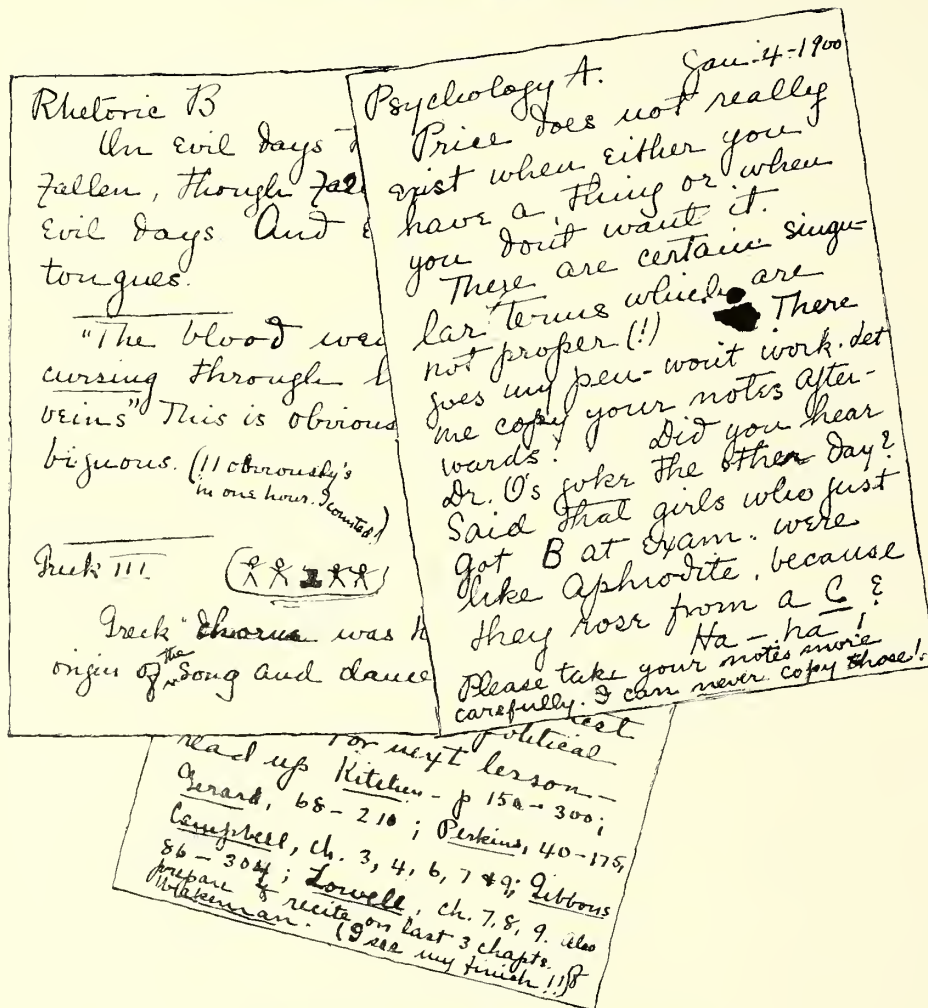 Rhetoric B
On Evil days
Fallen, Though Fal
Evil days And E
tongues.
"The blood was
cursing Through h
veins" This is obvious
biguous. (11 obviously's
in one hour. I counted!)
Greek III
Greek chorus was h
origin of the Song and dance
Psychology A. Jan-4-1900
Price does not really
exist when Either you
have a thing or when
you don't want it.
There are certain singu-
lar terms which are
not proper (!) There
goes my pen - won't work. Let
me copy your notes after-
wards! Did you hear
Dr. O's joke the other Day?
Said that girls who just
got B at Exam. were
like Aphrodite, because
they rose from a C!
Ha - ha!
Please take your notes more
carefully. I can never copy those!
est
Political
For next lesson -
read up Kitchen - p 150 - 300;
Gerard, 68 - 210; Perkins, 40 - 175,
Campbell, ch. 3, 4, 6, 7 & 9; Gibbons
86 - 304; Lowell, ch. 7, 8, 9. Also
prepare & recite on last 3 chapts. of
Wakeman. (I see my finish!!)